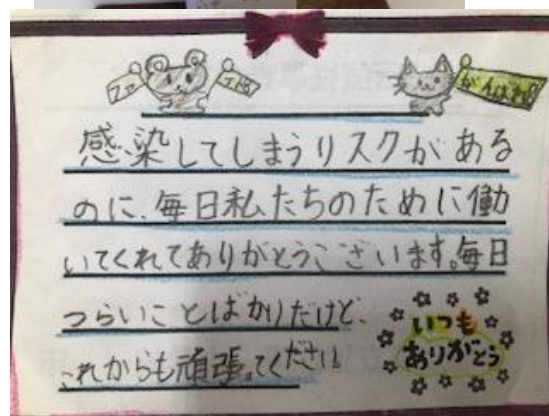 ファイト
がんばれ
感染してしまうリスクがある
のに、毎日私たちのために働
いてくれてありがとうございます。毎日
つらいことばかりだけど、
これからも頑張ってください
いつも
ありがとう